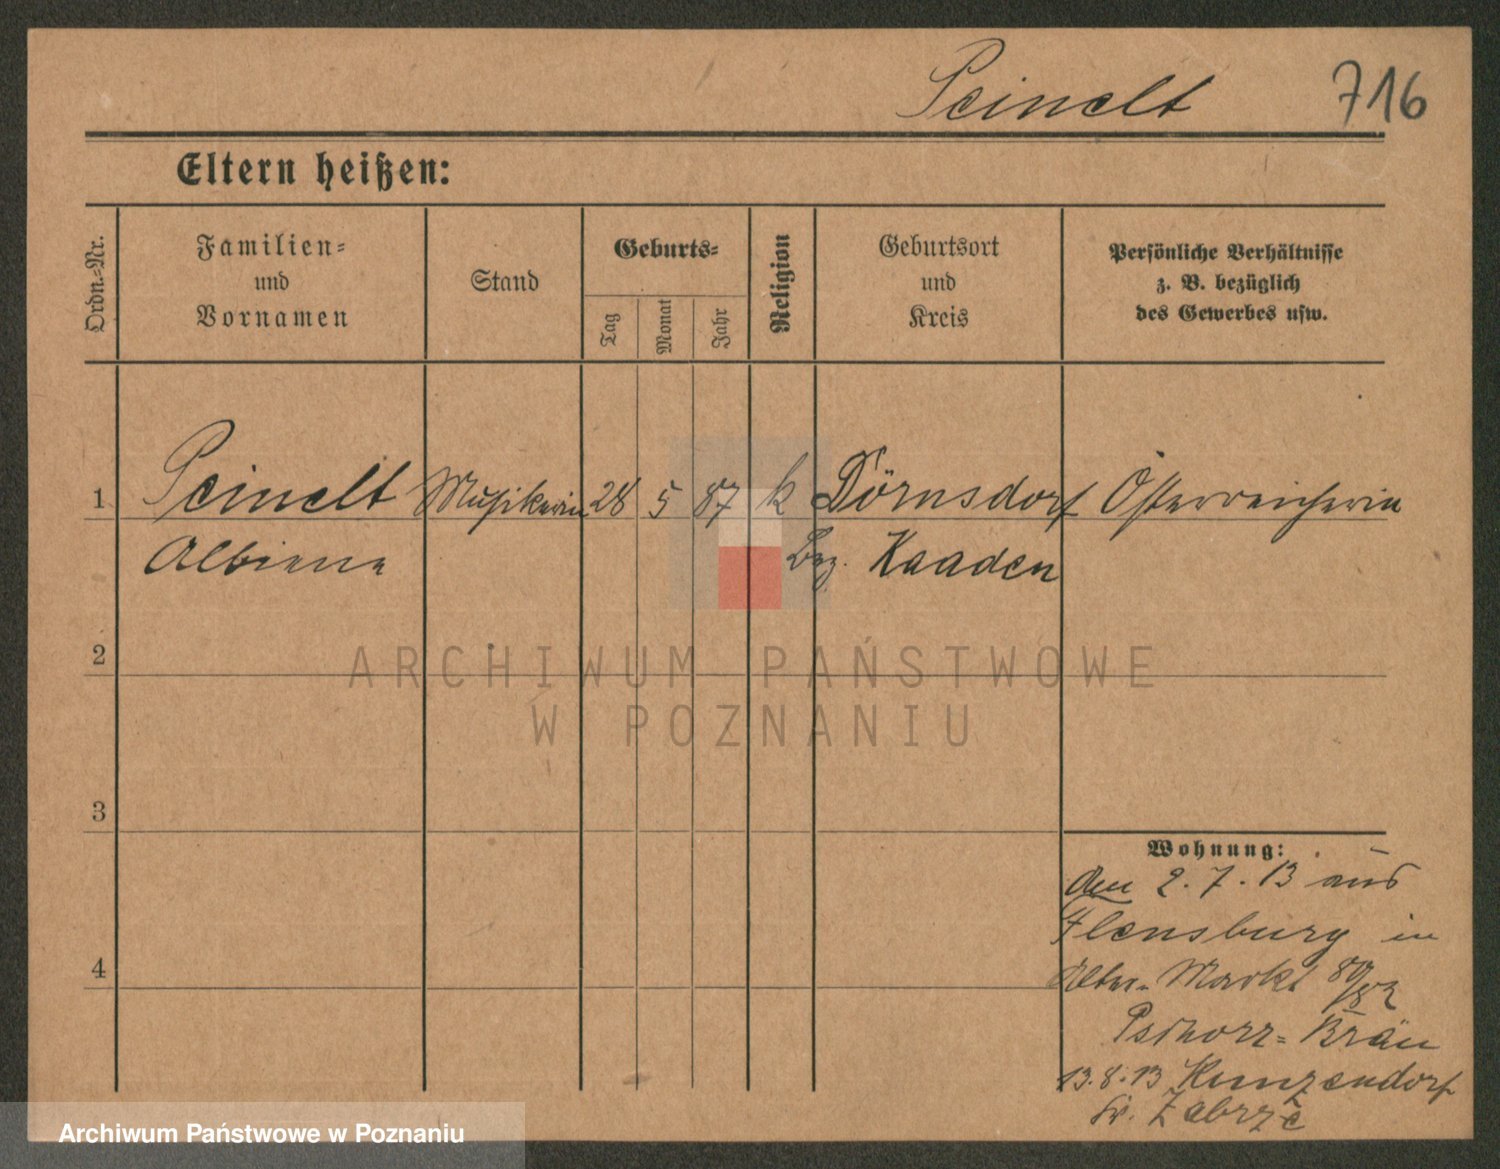 Peinelt 716
Eltern heißen:
Ordn.-Nr.
Familien-
und
Vornamen
Stand
Geburts-
Tag
Monat
Jahr
Religion
Geburtsort
und
Kreis
Persönliche Verhältnisse
z. B. bezüglich
des Gewerbes usw.
1 Peinelt Musikerin 28 5 87 k Dörnsdorf Österreicherin
Albiene Bez. Kaaden
2
3
4
Wohnung:
den 2.7.13 aus
Flensburg in
Alter-Markt 80/82
Pschorr-Bräu
13.8.13 Kunzendorf
Kr. Zabrze
ARCHIWUM PAŃSTWOWE
W POZNANIU
Archiwum Państwowe w Poznaniu